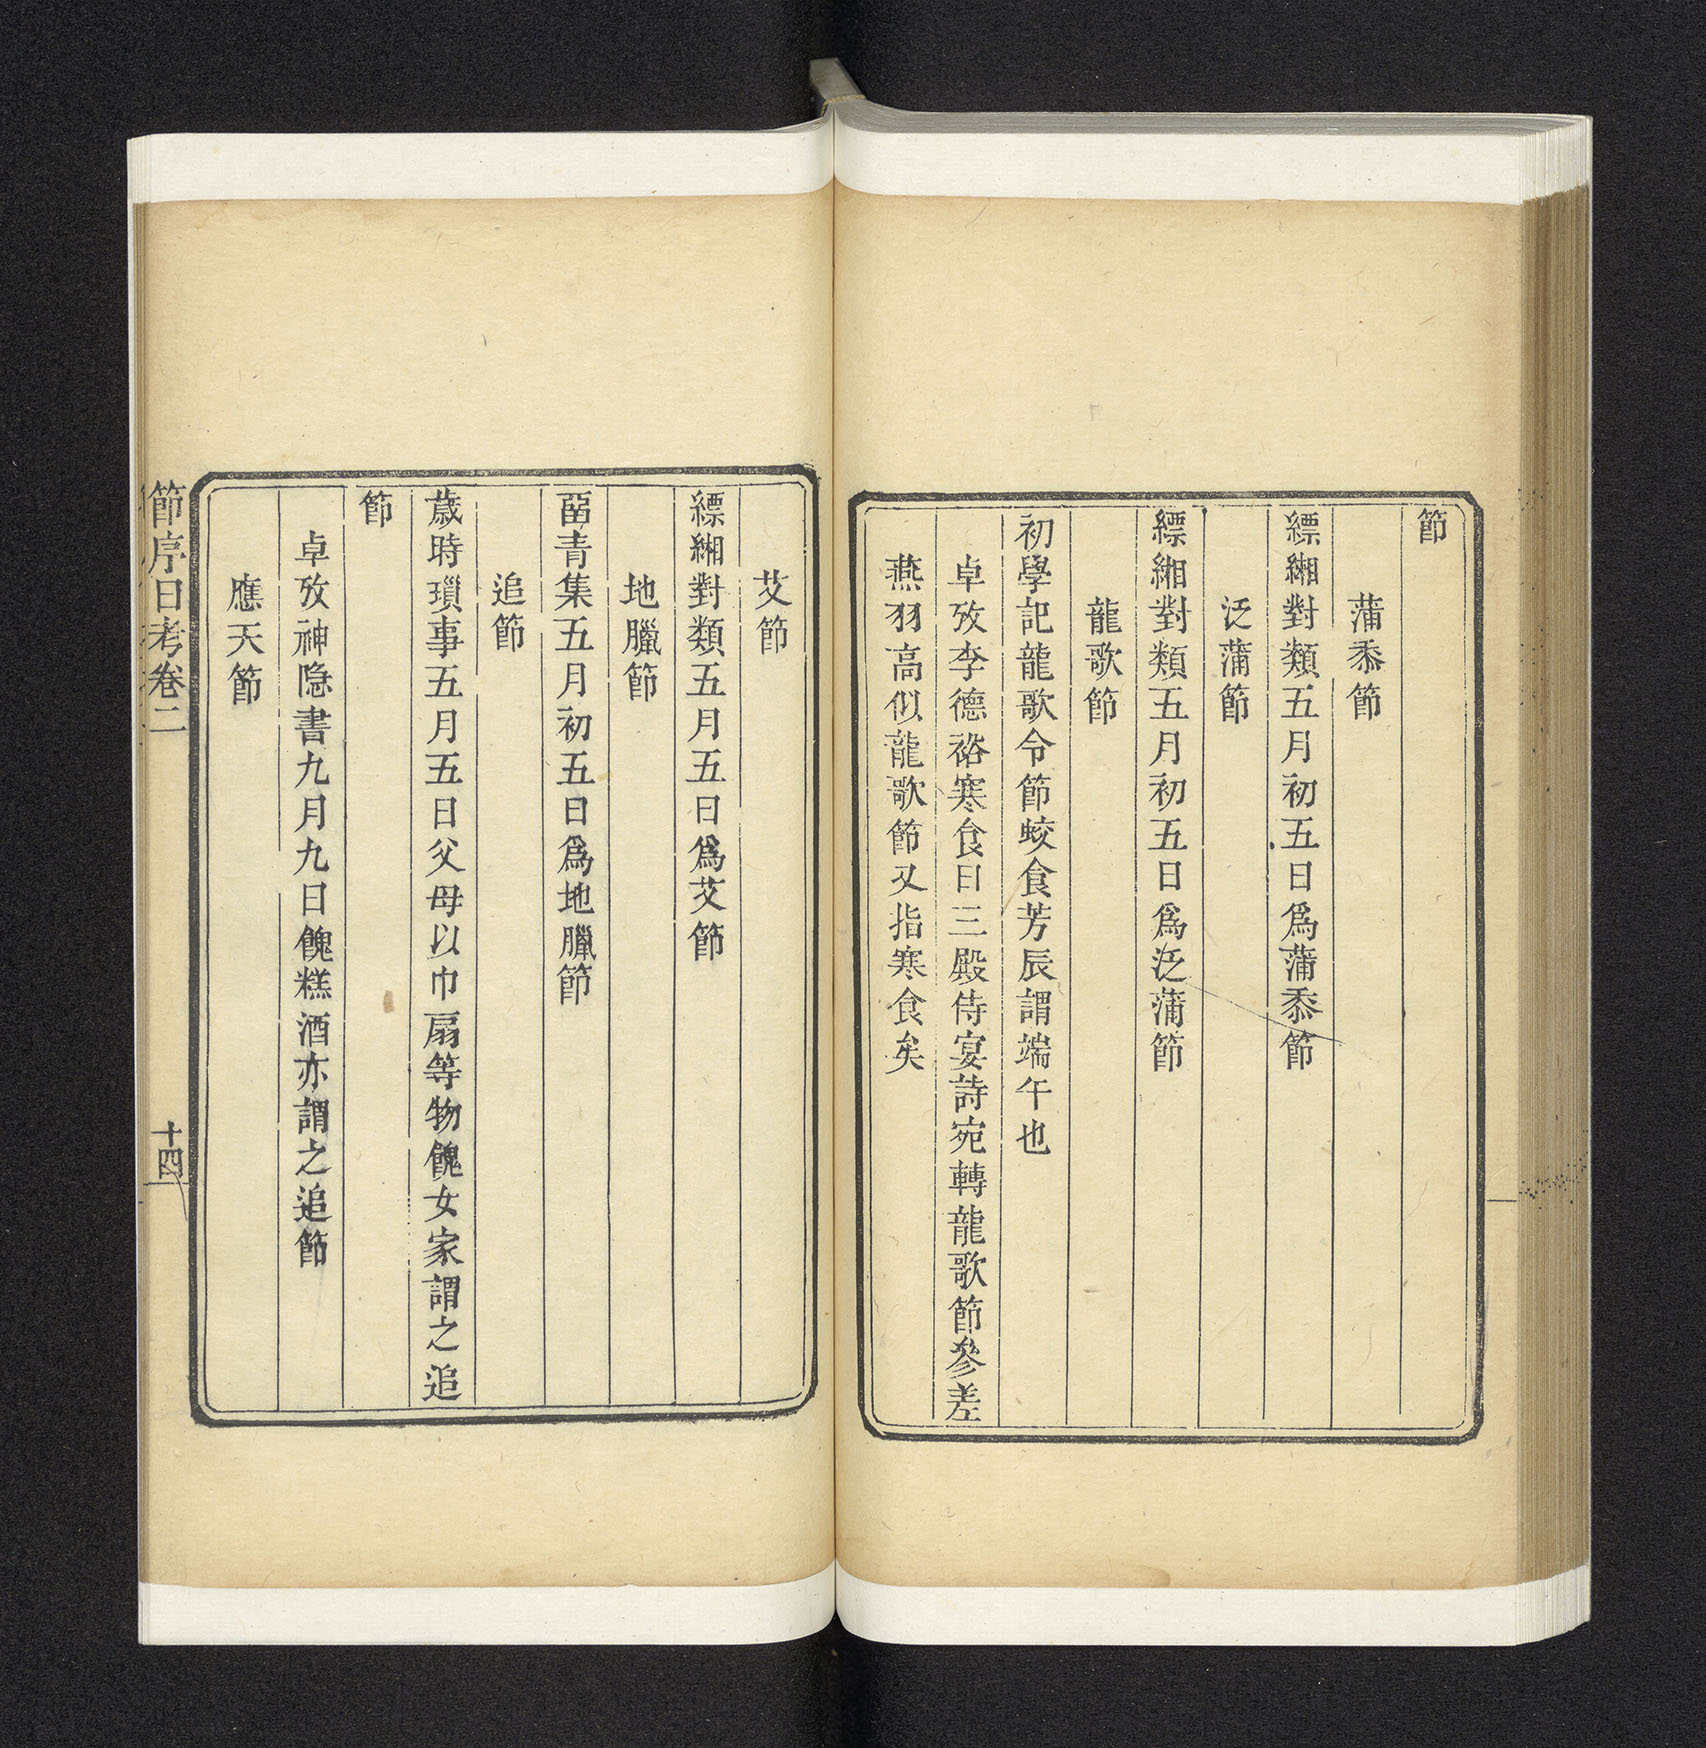 節
蒲黍節
縹緗對類五月初五日爲蒲黍節
泛蒲節
縹緗對類五月初五日爲泛蒲節
龍歌節
初學記龍歌令節蛟食芳辰謂端午也
卓攷李德裕寒食日三殿侍宴詩宛轉龍歌節參差
燕羽高似龍歌節又指寒食矣
艾節
縹緗對類五月五日爲艾節
地臘節
畱青集五月初五日爲地臘節
追節
歲時瑣事五月五日父母以巾扇等物餽女家謂之追
節
卓攷神隱書九月九日餽糕酒亦謂之追節
應天節
節序日考卷二
十四